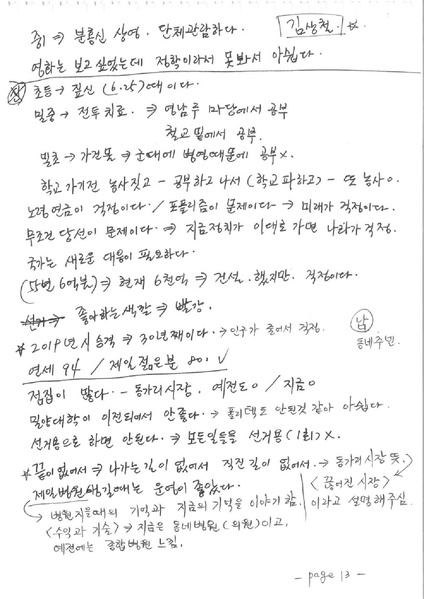 중1 ⇒ 분홍신 상영. 단체관람하다. 김상철. ☆
영화는 보고 싶었는데 정학이라서 못봐서 아쉽다.
초등 → 피신 (6.25)때이다.
밀중 → 전투 치료. ⇒ 영남루 마당에서 공부
철교 밑에서 공부.
밀초 → 가건물 ⇒ 군대에 병영때문에 공부×.
학교 가기전 농사짓고 - 공부하고 나서 (학교 파하고) - 또 농사○.
노령연금이 걱정이다. / 포퓰리즘이 문제이다 → 미래가 걱정이다.
무조건 당선이 문제이다 ⇒ 지금정치가 이대로 가면 나라가 걱정.
국가는 새로운 대응이 필요하다.
⇒ 현재 6천억 ⇒ 건설. 했지만. 걱정이다.
⇒ 좋아하는 색깔 ⇒ 빨강.
* 2019년 시 승격 → 30년째이다. → 인구가 줄어서 걱정.
남
동네주민.
연세 94 / 제일 젊은분 80. ✓
점집이 많다. - 동가리시장. 예전도○ / 지금○
밀양대학이 이전되어서 안좋다. → 폴리텍도 안된것 같아 아쉽다.
선거용으로 하면 안된다. → 모든일들을 선거용 (1회) ×.
* 끝이없어서 → 나가는 길이 없어서 직진길이 없어서. → 동가리시장 뜻.
제일병원 길때는 운영이 좋았다.
<끊어진 시장>
이라고 설명해주심.
→ 병원지을때의 기억과 지금의 기억을 이야기 함.
<수악과 기술> ⇒ 지금은 동네병원 (의원)이고,
예전에는 종합병원 느낌.
- page 13 -